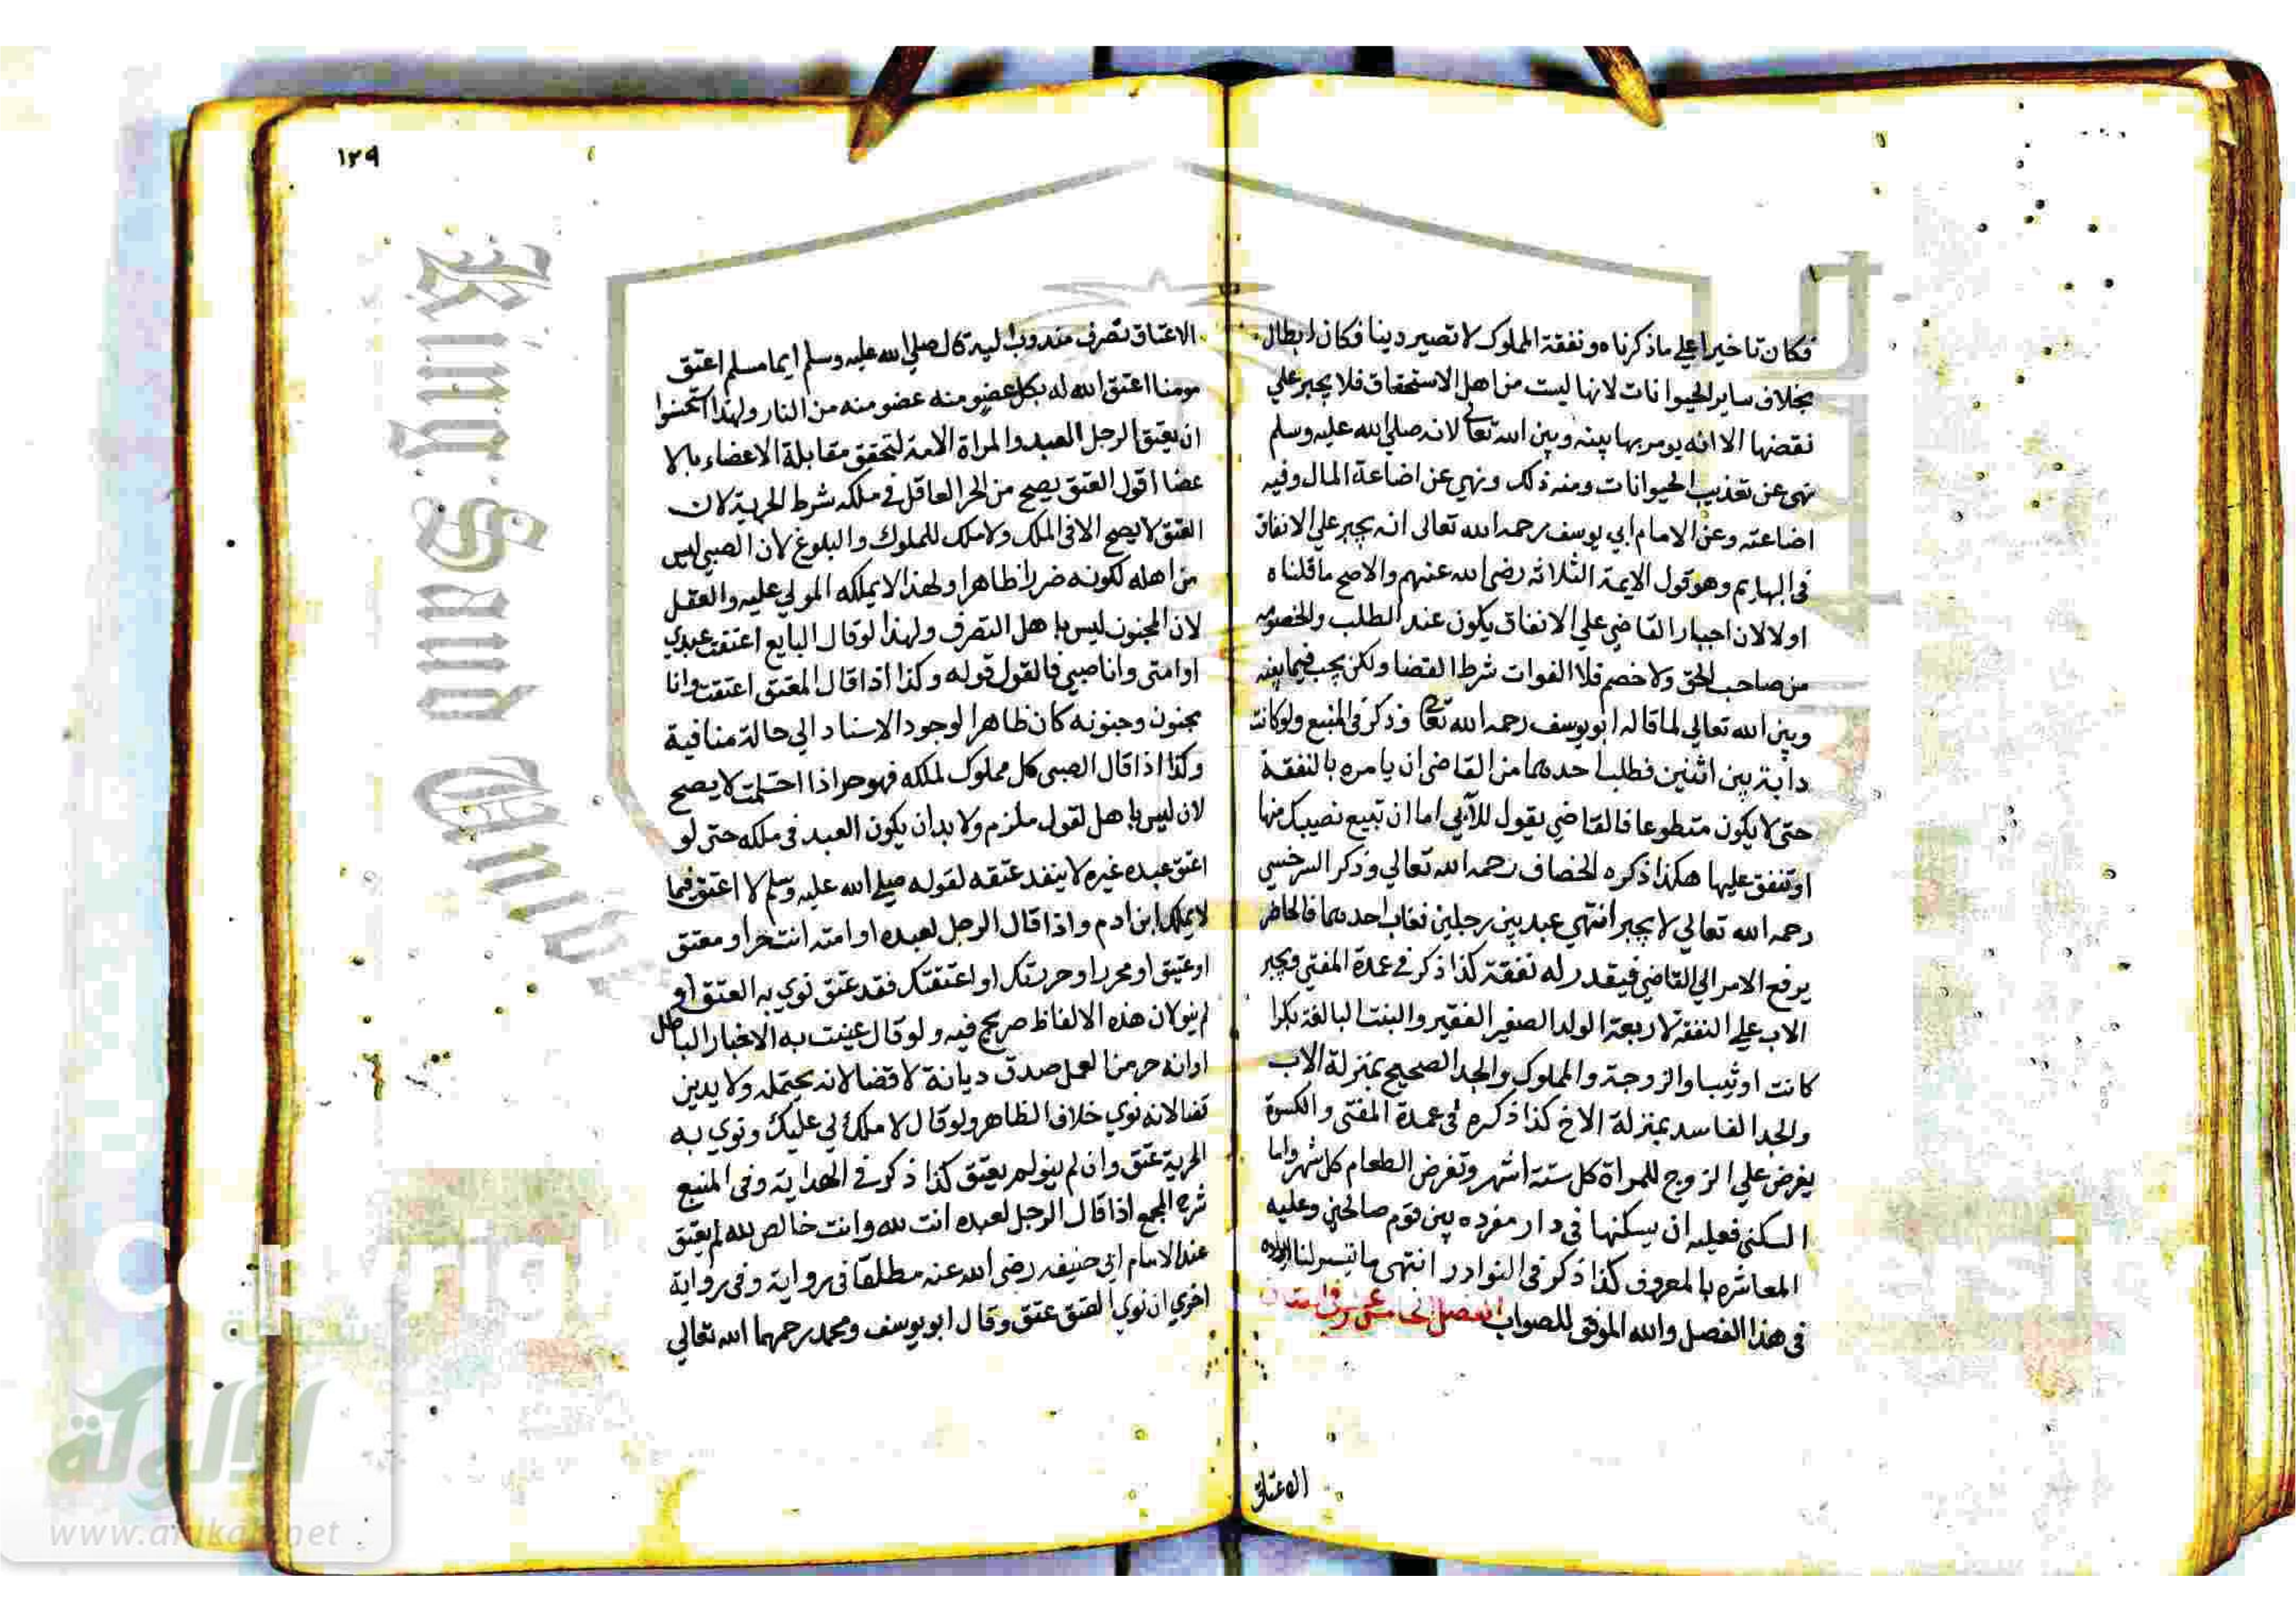 فكان تاخيرا علي ماذكرناه ونفقة المملوك لا تصير دينا فكان ابطال
بخلاف ساير الحيوانات لانها ليست من اهل الاستحقاق فلا يجبر علي
نقضها الا انه يومر بها بينه وبين الله تعالي لانه صلي الله عليه وسلم
نهي عن تعذيب الحيوانات ومنه ذلك ونهي عن اضاعة المال وفيه
اضاعته وعن الامام ابي يوسف رحمه الله تعالى انه يجبر علي الانفاق
في البهايم وهو قول الايمة الثلاثه رضي الله عنهم والاصح ماقلناه
اولا لان اجبار القاضي علي الانفاق يكون عند الطلب والخصومه
من صاحب الحق ولا خصم فلا الفوات شرط القضا ولكن يجب فيما بينه
وبين الله تعالي لما قاله ابو يوسف رحمه الله تعالي وذكر في المنبع ولو كانت
دابة بين اثنين فطلب احدهما من القاضي ان يامره بالنفقة
حتى لا يكون متطوعا فالقاضي يقول للآبي اما ان تبيع نصيبك منها
او تنفق عليها هكذا ذكره الخصاف رحمه الله تعالي وذكر السرخسي
رحمه الله تعالي لا يجبر انتهي عبد بين رجلين فغاب احدهما فالحاضر
يرفع الامر الي القاضي فيقدر له نفقة كذا ذكر في عمدة المفتي ويجبر
الاب علي النفقة لاربعة الولد الصغير الفقير والبنت البالغة بكرا
كانت او ثيبا والزوجة والمملوك والجد الصحيح بمنزلة الاب
والجد الفاسد بمنزلة الاخ كذا ذكره في عمدة المفتى والكسوة
يفرض علي الزوج للمراة كل ستة اشهر وتفرض الطعام كل شهر واما
السكني فعليه ان يسكنها في دار مفرده بين قوم صالحين وعليه
المعاشره بالمعروف كذا ذكر في النوادر انتهى ما تيسر لنا ايراده
في هذا الفصل والله الموفق للصواب الفصل الخامس عشر في
الاعتاق
١٢٩
الاعتاق تصرف مندوب اليه قال صلي الله عليه وسلم ايما مسلم اعتق
مومنا اعتق الله له بكل عضو منه عضو منه من النار ولهذا استحسنوا
ان يعتق الرجل العبد والمراة الامة لتحقق مقابلة الاعضاء بالا
عضا اقول العتق يصح من الحر العاقل في ملكه شرط الحرية لان
العتق لا يصح الا في الملك ولا ملك للمملوك والبلوغ لان الصبي ليس
من اهله لكونه ضررا ظاهرا ولهذا لا يملكه المولي عليه والعقل
لان المجنون ليس باهل التصرف ولهذا لو قال البايع اعتقت عبدي
او امتى وانا صبي فالقول قوله وكذا اذا قال المعتق اعتقت وانا
مجنون وجنونه كان ظاهرا لوجود الاسناد الي حالة منافية
وكذا اذا قال الصبي كل مملوك لملكه فهو حر اذا احتلمت لا يصح
لان ليس باهل لقول ملزم ولا بد ان يكون العبد في ملكه حتى لو
اعتق عبده غيره لا ينفد عتقه لقوله صلي الله عليه وسلم لا اعتق فيما
لا يملك ابن ادم واذا قال الرجل لعبده او امته انت حر او معتق
او عتيق او محرر او حررتك او اعتقتك فقد عتق نوي به العتق او
لم ينو لان هذه الالفاظ صريح فيه ولو قال عنيت به الاخبار الباطل
او انه حر من العمل صدق ديانة لا قضا لانه يحتمله ولا يدين
قضا لانه نوي خلاف الظاهر ولو قال لا ملك لي عليك ونوي به
الحرية عتق وان لم ينو لم يعتق كذا ذكر في الهداية وفي المنبع
شرح المجمع اذا قال الرجل لعبده انت لله وانت خالص لله لم يعتق
عند الامام ابي حنيفه رضي الله عنه مطلقا في رواية وفي رواية
اخري ان نوي العتق عتق وقال ابو يوسف ومحمد رحمهما الله تعالي
شبكة
الألوكة
www.alukah.net